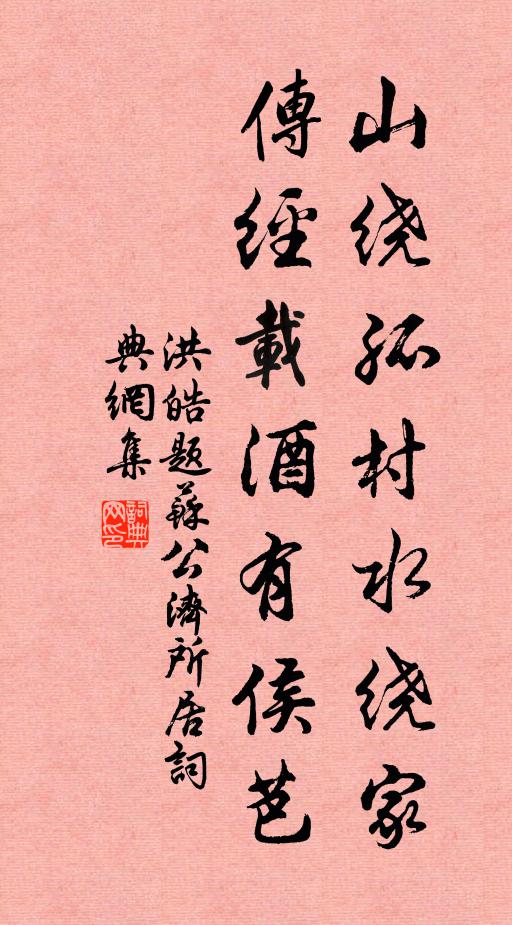 山绕孤村水绕家
傳經載酒有侯芭
洪皓题蘇公濟所居詞
典網集
詞典网印